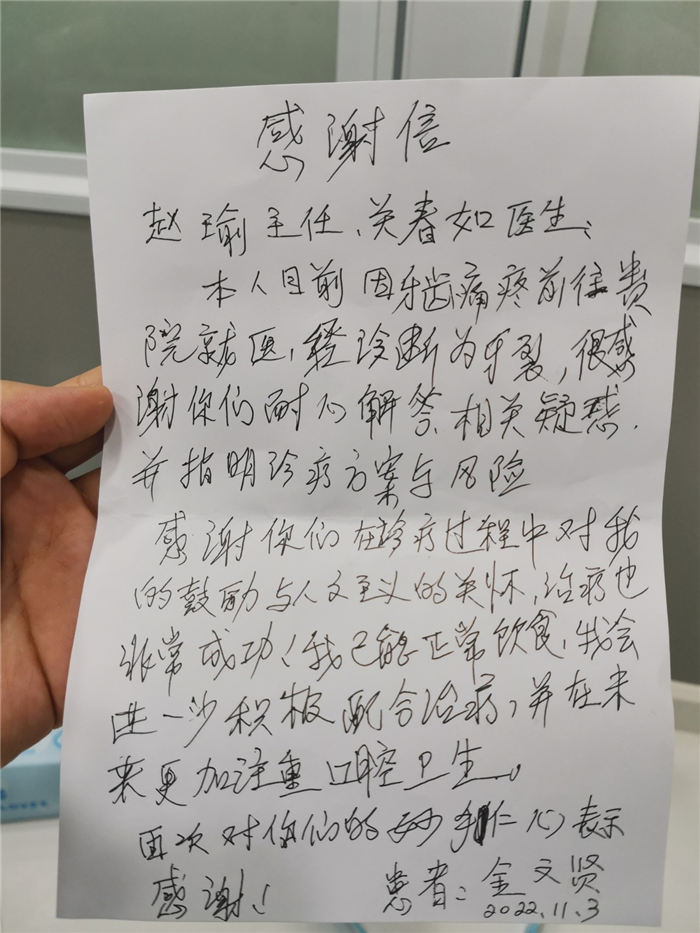 感谢信
赵瑜主任、关春如医生:
本人目前因牙齿痛疼前往贵
院就医,经诊断为牙裂,很感
谢你们耐心解答相关疑惑.
并指明诊疗方案与风险
感谢你们在诊疗过程中对我
的鼓励与人文主义的关怀,治疗也
非常成功!我已能正常饮食,我会
进一步积极配合治疗,并在未
来更加注重口腔卫生。
再次对你们的妙手仁心表示
感谢!
患者:金文贤
2022.11.3